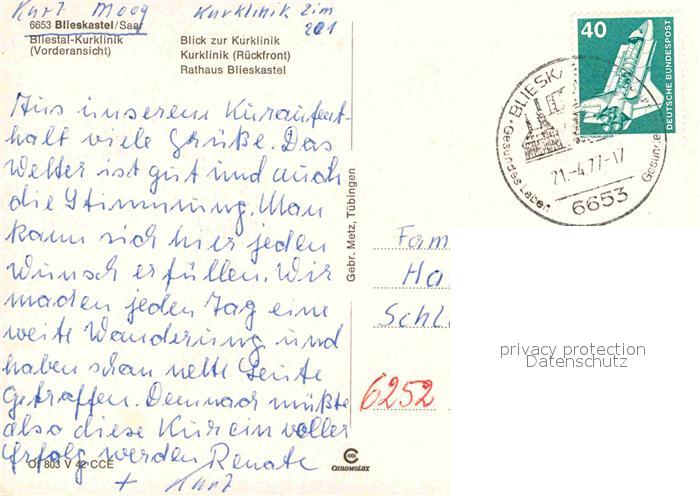 Kurt Moog Kurklinik Zim
201
6653 Blieskastel/Saar
Bliestal-Kurklinik
(Vorderansicht)
Blick zur Kurklinik
Kurklinik (Rückfront)
Rathaus Blieskastel
Aus unserem Kuraufent-
halt viele Grüße. Das
Wetter ist gut und auch
die Stimmung. Man
kann sich hier jeden
Wunsch erfüllen. Wir
machen jeden Tag eine
weite Wanderung und
haben schon nette Leute
Getroffen. Demnach müßte
also diese Kur ein voller
Erfolg werden Renate
+ Kurt
Of 803 V 42 CCE
Gebr. Metz, Tübingen
CHROMOLUX
40
DEUTSCHE BUNDESPOST
BLIESKA
Gesundes Leben
21.-4.77-17
Gesunde
6653
Ha
Schl
6252
privacy protection
Datenschutz